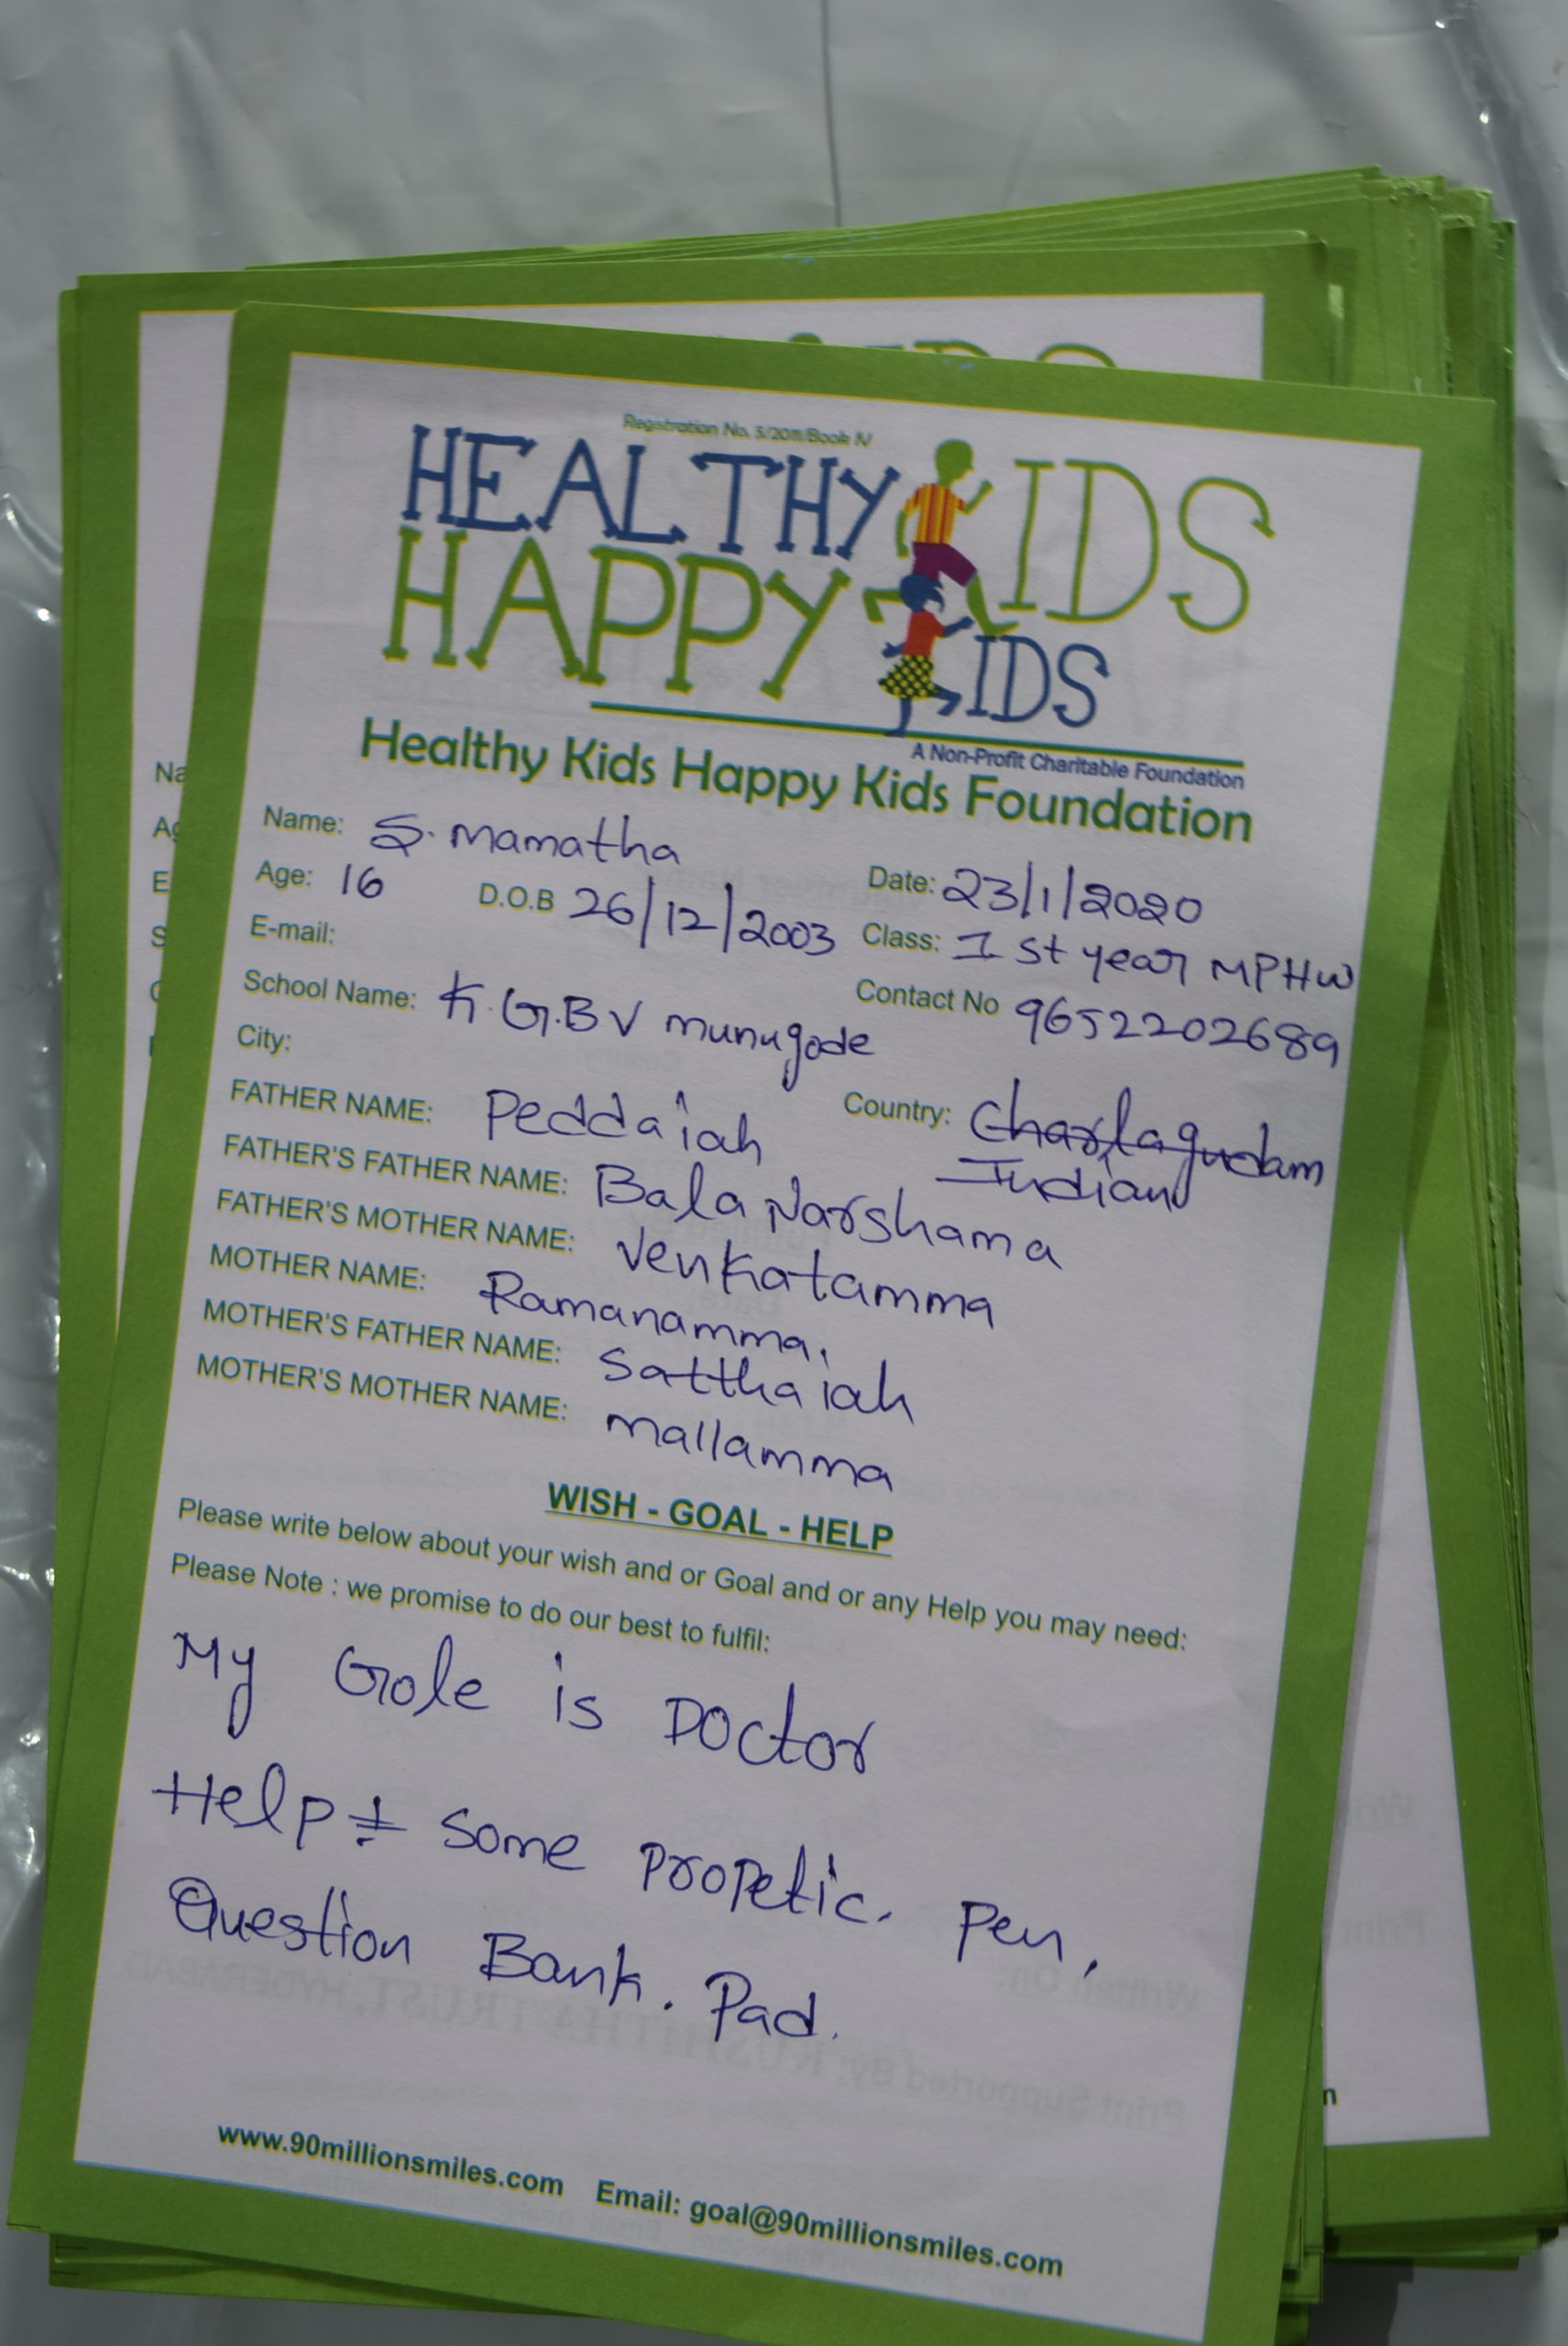 Registration No. 5/2011/Book IV
HEALTHY KIDS
HAPPY KIDS
A Non-Profit Charitable Foundation
Healthy Kids Happy Kids Foundation
Name: S. Mamatha
Date: 23/1/2020
Age: 16 D.O.B 26/12/2003 Class: 1 st year MPHW
E-mail:
Contact No 9652202689
School Name: K.G.B V munugode
City:
Country: Charlagudam
Indian
FATHER NAME: Peddaiah
FATHER'S FATHER NAME: Bala Narshama
FATHER'S MOTHER NAME: Venkatamma
MOTHER NAME: Ramanamma.
MOTHER'S FATHER NAME: Satthaiah
MOTHER'S MOTHER NAME: mallamma
WISH - GOAL - HELP
Please write below about your wish and or Goal and or any Help you may need:
Please Note : we promise to do our best to fulfil:
My Gole is Doctor
Help : Some propetic. Pen,
Question Bank. Pad.
www.90millionsmiles.com Email: goal@90millionsmiles.com